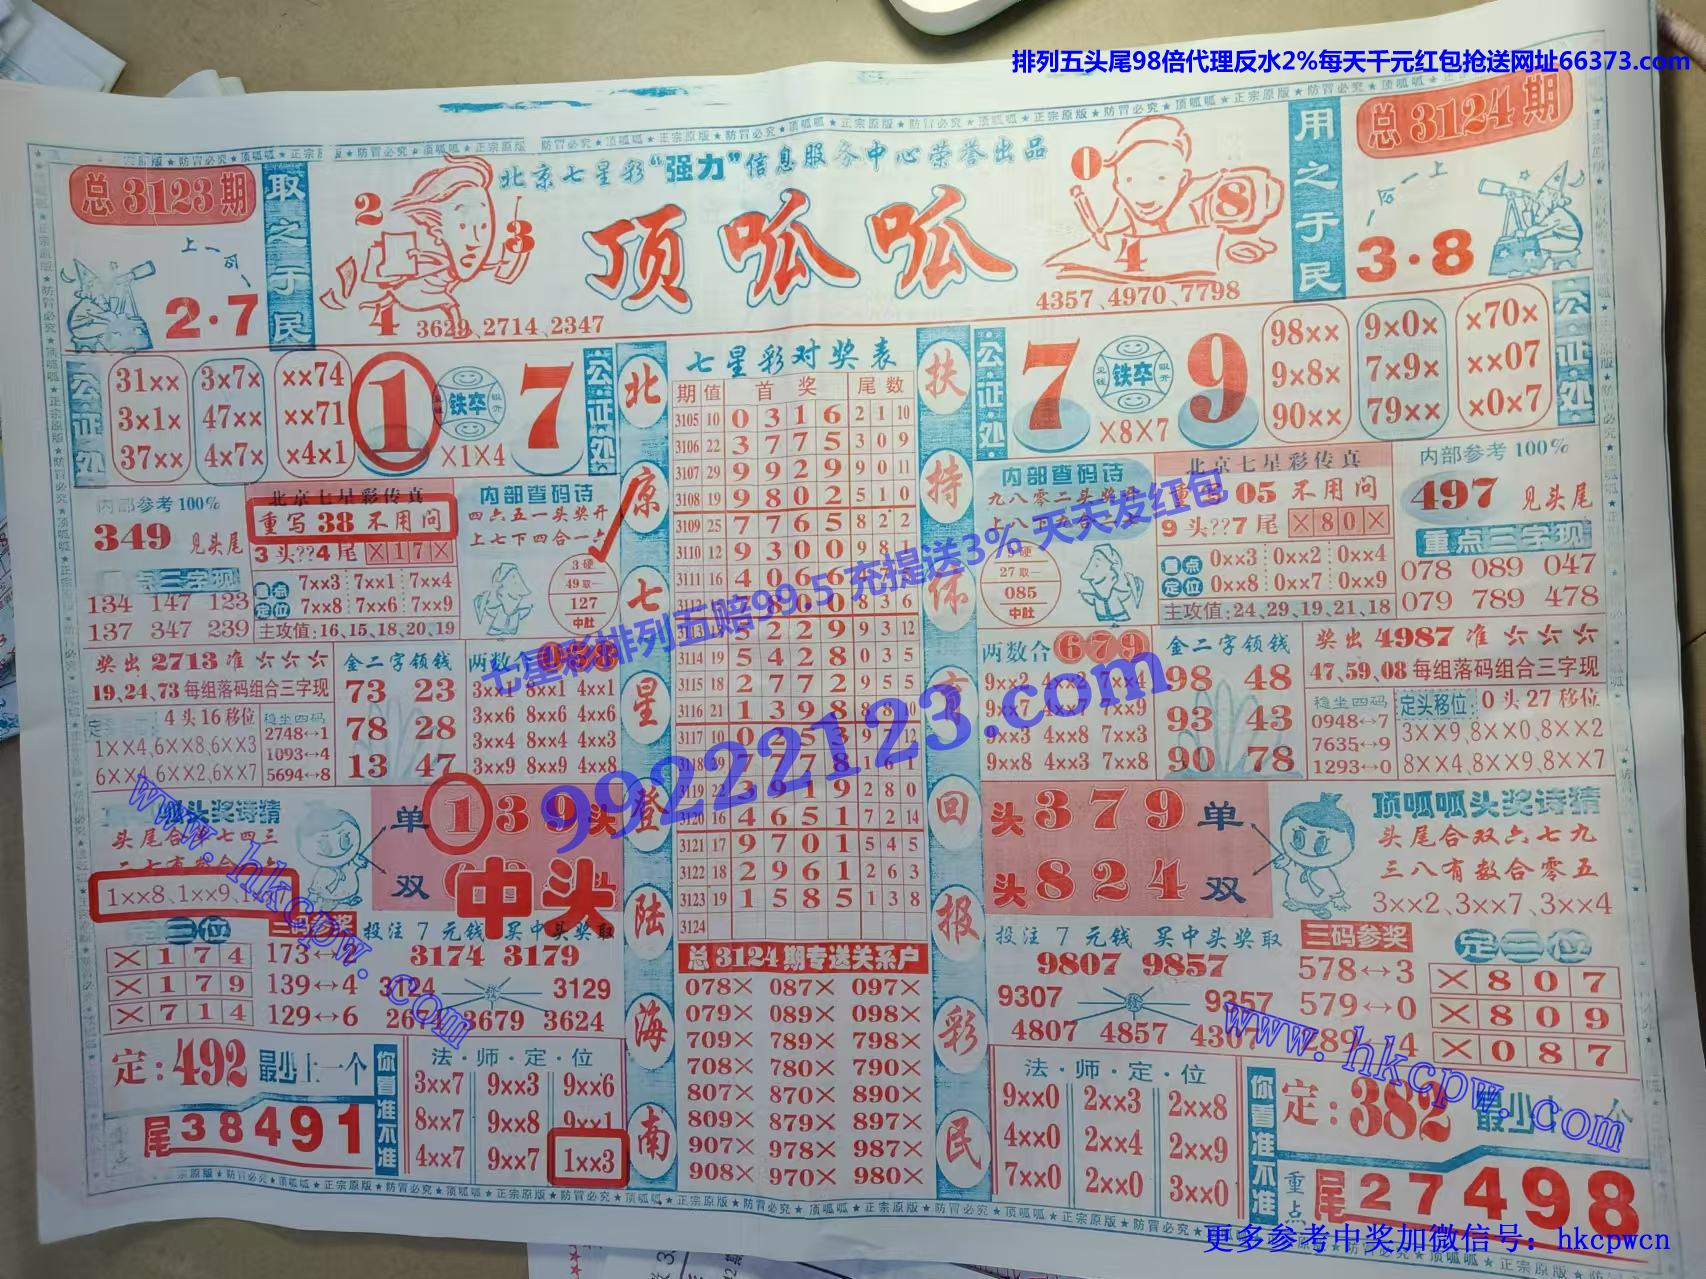 排列五头尾98倍代理反水2%每天千元红包抢送网址66373.com
北京七星彩“强力”信息服务中心荣誉出品
顶呱呱
总3123期
取之于民
2·7
2 3 4
3629、2714、2347
0 8 4
4357、4970、7798
用之于民
总3124期
3·8
公证处
31×× 3×7× ××74
3×1× 47×× ××71
37×× 4×7× ×4×1
1 铁卒 7
×1×4
公证处
内部参考100%
349 见头尾
北京七星彩传真
重写38不用问
3头??4尾 ×17×
内部查码诗
四六五一头奖开
上七下四合一六
重点三字现
134 147 123
137 347 239
重点定位
7××3 7××1 7××4
7××8 7××6 7××9
主攻值:16,15,18,20,19
3硬
49取一
127
中肚
奖出2713准
19,24,73每组落码组合三字现
4头16移位
1××4,6××8,6××3
6××4,6××2,6××7
稳坐四码
2748↔1
1093↔4
5694↔8
金二字领钱
73 23
78 28
13 47
两数合
3××7 8××1 4××1
3××6 8××6 4××6
3××4 8××4 4××3
3××9 8××9 4××8
头奖诗猜
头尾合单七四三
1××8、1××9、
单 139 头
双
中头
三码参奖
投注7元钱 买中头奖取
×174
×179
×714
173↔2
139↔4
129↔6
3174 3179
3124 3129
2674 3679 3624
定:492 最少上一个
尾38491
你看准不准
法·师·定·位
3××7 9××3 9××6
8××7 9××8 9××1
4××7 9××7 1××3
北京七星彩登陆海南
七星彩对奖表
期 值 首奖 尾数
3105 10 0 3 1 6 2 1 10
3106 22 3 7 7 5 3 0 9
3107 29 9 9 2 9 9 0 11
3108 19 9 8 0 2 5 1 0
3109 25 7 7 6 5 8 2 2
3110 12 9 3 0 0 9 8 1
3111 16 4 0 6 6
8 0 0 8 3 6
5 2 2 9 9 3 12
3114 19 5 4 2 8 0 3 5
3115 18 2 7 7 2 9 5 5
3116 21 1 3 9 8 8 8 10
3117 10 0 2 5 3 9 7 12
7 7 7 8 1 6 1
3119 22 3 9 1 9 2 8 0
3120 16 4 6 5 1 7 2 14
3121 17 9 7 0 1 5 4 5
3122 18 2 9 6 1 2 6 3
3123 19 1 5 8 5 1 3 8
3124
总3124期专送关系户
078× 087× 097×
079× 089× 098×
709× 789× 798×
708× 780× 790×
807× 870× 890×
809× 879× 897×
907× 978× 987×
908× 970× 980×
扶持体育回报彩民
公证处
7 铁卒 9
×8×7
98×× 9×0× ×70×
9×8× 7×9× ××07
90×× 79×× ×0×7
公证处
内部查码诗
九八零二头奖
北京七星彩传真
重写05不用问
9头??7尾 ×80×
内部参考100%
497 见头尾
重点三字现
078 089 047
079 789 478
27取一
085
中肚
重点定位
0××3 0××2 0××4
0××8 0××7 0××9
主攻值:24,29,19,21,18
两数合679
9××2 4××2 7××4
9××7 4××7 7××9
9××3 4××8 7××3
9××8 4××3 7××8
金二字领钱
98 48
93 43
90 78
奖出4987准
47,59,08每组落码组合三字现
稳坐四码
0948↔7
7635↔9
1293↔0
定头移位:0头27移位
3××9,8××0,8××2
8××4,8××9,8××7
头379单
头824双
顶呱呱头奖诗猜
头尾合双六七九
三八有数合零五
3××2、3××7、3××4
投注7元钱 买中头奖取
9807 9857
9307 9357
4807 4857 4307
三码参奖
578↔3
579↔0
定三位
×807
×809
×087
法·师·定·位
9××0 2××3 2××8
4××0 2××4 2××9
7××0 2××0 3××0
你看准不准
定:382
重点 尾27498
七星彩排列五赔99.5 充提送3% 天天发红包
99222123.com
www.hkcpw.com
www.hkcpw.com
更多参考中奖加微信号: hkcpwcn